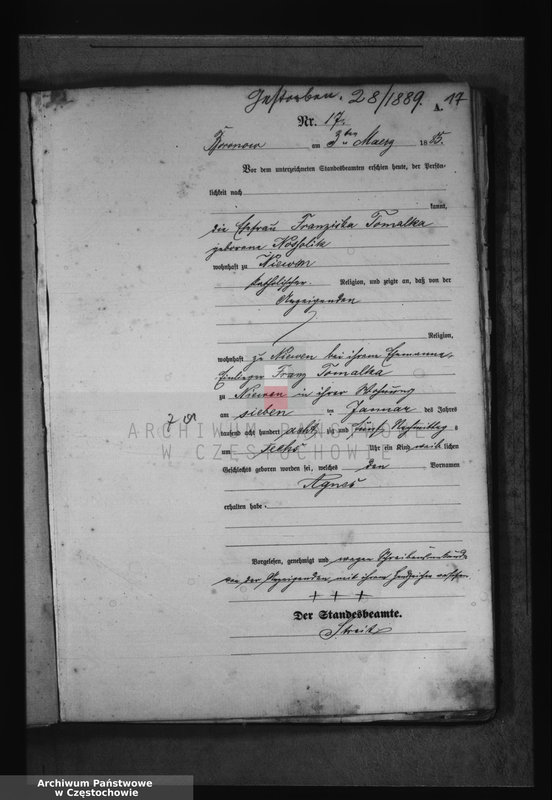 Gestorben. 28/1889. 17
A.
Nr. 17.
Boronow am 3ten Maerz 1885.
Vor dem unterzeichneten Standesbeamten erschien heute, der Persön-
lichkeit nach
kannt,
die Ehefrau Franziska Tomalka
geborene
wohnhaft zu Niewen
katholischer Religion, und zeigte an, daß von der
Anzeigenden
Religion,
wohnhaft zu Niewen bei ihrem Ehemanne,
Einlieger Franz Tomalka
zu Niewen in ihrer Wohnung
am sieben ten Januar des Jahres
tausend acht hundert achtzig und fünf Nachmittags
um sechs Uhr ein Kind weiblichen
Geschlechts geboren worden sei, welches den Vornamen
Agnes
erhalten habe.
Vorgelesen, genehmigt und wegen Schreibensunkunde
von der Anzeigenden mit ihrem Handzeichen versehen
+ + +
Der Standesbeamte.
Streit
ARCHIWUM PAŃSTWOWE
W CZĘSTOCHOWIE
Archiwum Państwowe
w Częstochowie